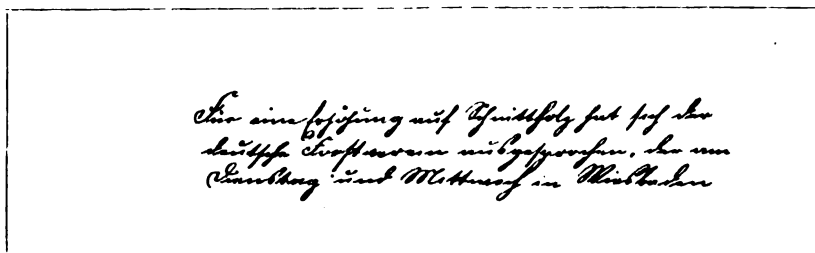 Für eine Erhöhung auf Schnittholz hat sich der
deutsche Forstverein ausgesprochen, der am
Dienstag und Mittwoch in Wiesbaden